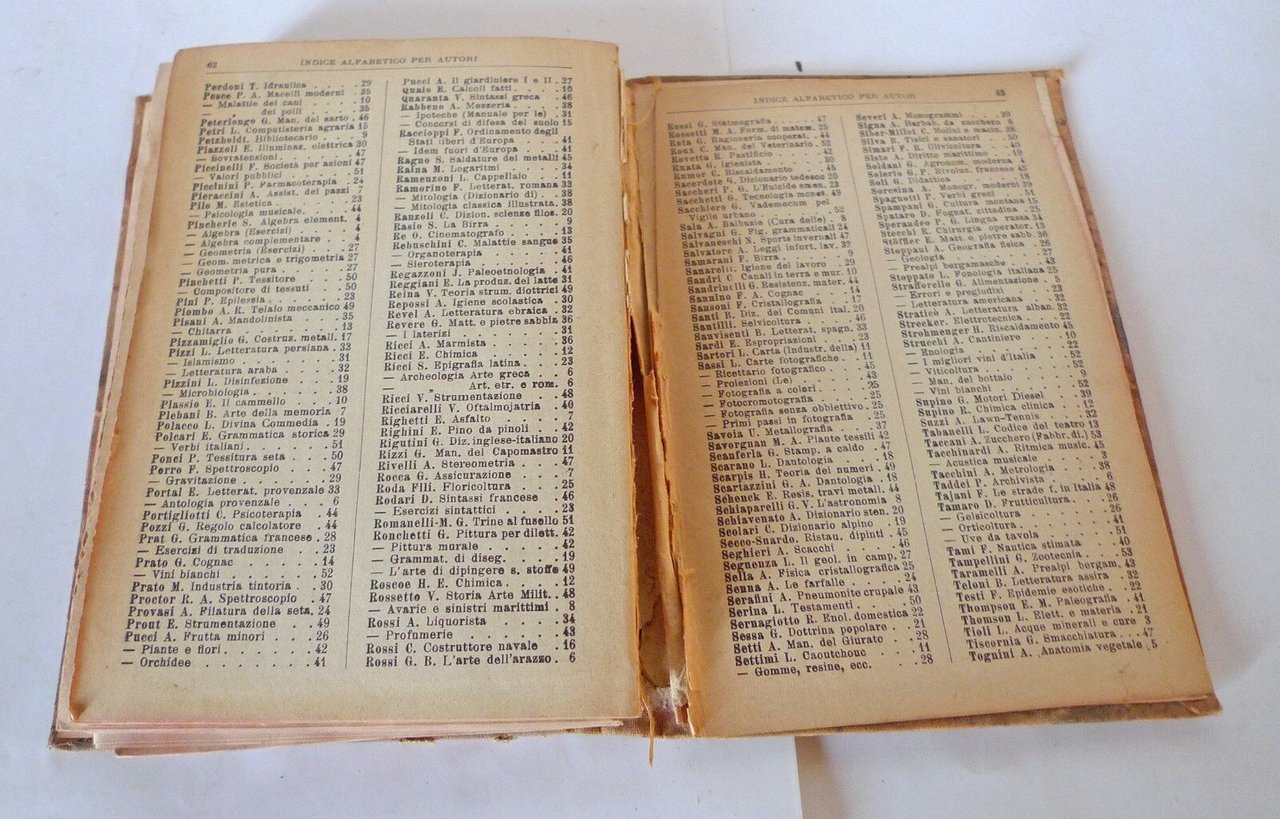 62
INDICE ALFABETICO PER AUTORI
Perdoni T. Idraulica . . . . 29
Pesce P. A. Macelli moderni . 35
— Malattie dei cani . . . 10
— „ dei polli . . . 35
Peterlongo G. Man. del sarto . 46
Petri L. Computisteria agraria 15
Petzholdt. Bibliotecario . . . 9
Piazzoli E. Illuminaz. elettrica 30
— Sovratensioni . . . . 47
Piccinelli F. Società per azioni 47
— Valori pubblici . . . . 51
Picchini P. Farmacoterapia . 24
Pieraccini A. Assist. dei pazzi 7
Pilo M. Estetica . . . . 23
— Psicologia musicale. . . . 44
Pincherle S. Algebra element. 4
— Algebra (Esercizi) . . . 4
— Algebra complementare . . 4
— Geometria (Esercizi) . . . 27
— Geom. metrica e trigometria 27
— Geometria pura . . . . 27
Pinchetti P. Tessitore . . . 50
— Compositore di tessuti . . 50
Pini P. Epilessia . . . . 23
Piombo A. R. Telaio meccanico 49
Pisani A. Mandolinista . . . 35
— Chitarra . . . . 13
Pizzamiglio G. Costruz. metall. 17
Pizzi L. Letteratura persiana . 33
— Islamismo . . . . 31
— Letteratura araba . . . 32
Pizzini L. Disinfezione . . . 19
— Microbiologia . . . . 38
Plassio E. Il cammello . . . 10
Plebani B. Arte della memoria 7
Polacco L. Divina Commedia . 19
Polcari E. Grammatica storica 29
— Verbi italiani. . . . . 51
Ponci P. Tessitura seta . . . 50
Porro F. Spettroscopio . . . 47
— Gravitazione . . . . 29
Portal E. Letterat. provenzale 33
— Antologia provenzale . . . 6
Portigliotti C. Psicoterapia . . 44
Pozzi G. Regolo calcolatore . 44
Prat G. Grammatica francese . 28
— Esercizi di traduzione . . 23
Prato G. Cognac . . . . 14
— Vini bianchi . . . . 52
Prato M. Industria tintoria . 30
Proctor R. A. Spettroscopio . 47
Provasi A. Filatura della seta. 24
Prout E. Strumentazione . . 49
Pucci A. Frutta minori . . . 26
— Piante e fiori . . . . 42
— Orchidee . . . . . 41
Pucci A. Il giardiniere I e II . 27
Quaio E. Calcoli fatti . . . 10
Quaranta V. Sintassi greca . 46
Rabbeno A. Mezzeria . . . 38
— Ipoteche (Manuale per le) . 31
— Concorsi di difesa del suolo 15
Raccioppi F. Ordinamento degli
Stati liberi d'Europa . . . 41
— Idem fuori d'Europa . . . 41
Ragno S. Saldature dei metalli 45
Raina M. Logaritmi . . . 34
Ramenzoni L. Cappellaio . . 11
Ramorino F. Letterat. romana 33
— Mitologia (Dizionario di) . . 38
— Mitologia classica illustrata. 38
Ranzoli C. Dizion. scienze filos. 20
Rasio S. La Birra . . . . 9
Re O. Cinematografo . . . 13
Rebuschini C. Malattie sangue 35
— Organoterapia . . . . 41
— Sieroterapia . . . . 46
Regazzoni J. Paleoetnologia . 41
Reggiani E. La produz. del latte 31
Reina V. Teoria strum. diottrici 49
Repossi A. Igiene scolastica . 30
Revel A. Letteratura ebraica . 32
Revere G. Matt. e pietre sabbia 36
— I laterizi . . . . 31
Ricci A. Marmista . . . . 36
Ricci E. Chimica . . . . 12
Ricci S. Epigrafia latina . . 23
— Archeologia Arte greca . . 6
Art. etr. e rom. . 6
Ricci V. Strumentazione . . 48
Ricciarelli V. Oftalmojatria . 40
Righetti E. Asfalto . . . 7
Righini E. Pino da pinoli . . 42
Rigutini G. Diz. inglese-italiano 20
Rizzi G. Man. del Capomastro 11
Rivelli A. Stereometria . . . 47
Rocca G. Assicurazione . . . 7
Roda Flli. Floricoltura . . . 25
Rodari D. Sintassi francese . 46
— Esercizi sintattici . . . 23
Romanelli-M. G. Trine al fusello 51
Ronchetti G. Pittura per dilett. 42
— Pittura murale . . . . 42
— Grammat. di diseg. . . . 19
— L'arte di dipingere s. stoffe 49
Roscoe H. E. Chimica . . . 12
Rossetto V. Storia Arte Milit. . 48
— Avarie e sinistri marittimi . 8
Rossi A. Liquorista . . . 34
— Profumerie . . . . 43
Rossi C. Costruttore navale . 16
Rossi G. B. L'arte dell'arazzo . 6
INDICE ALFABETICO PER AUTORI
63
Rossi G. Statmografia . . . 47
Rossotti M. A. Form. di matem. 25
Rota G. Ragioneria cooperat. . 44
Roux C. Man. del Veterinario . 52
Rovetta R. Pastificio . . . 42
Ruata G. Igienista . . . . 30
Rumor C. Riscaldamento . . 45
Sacerdote G. Dizionario tedesco 20
Saccheri P. G. L'Euclide emen. 23
Sacchetti G. Tecnologia monet. 49
Sacchiero G. Vademecum pel
Vigile urbano . . . . 52
Sala A. Balbusie (Cura delle) . 8
Salvagni G. Fig. grammaticali 24
Salvaneschi N. Sports invernali 47
Salvatore A. Leggi infort. lav. 32
Samarani F. Birra . . . . 9
Sanarelli. Igiene del lavoro . 29
Sandri C. Canali in terra e mur. 10
Sandrinelli G. Resistenz. mater. 44
Sannino F. A. Cognac . . . 14
Sansoni F. Cristallografia . . 17
Santi B. Diz. dei Comuni ital. 20
Santilli. Selvicoltura . . . 46
Sanvisenti B. Letterat. spagn. 33
Sardi E. Espropriazioni . . 23
Sartori L. Carta (Industr. della) 11
Sassi L. Carte fotografiche . . 11
— Ricettario fotografico . . 45
— Proiezioni (Le) . . . . 43
— Fotografia a colori . . . 25
— Fotocromotografia . . . 25
— Fotografia senza obbiettivo. 25
— Primi passi in fotografia . 25
Savoia U. Metallografia . . 37
Savorgnan M. A. Piante tessili 42
Scanferla G. Stamp. a caldo . 47
Scarano L. Dantologia . . . 18
Scarpis H. Teoria dei numeri . 49
Scartazzini G. A. Dantologia . 18
Schenck E. Resis. travi metall. 44
Schiaparelli G. V. L'astronomia 8
Schiavenato A. Dizionario sten. 20
Scolari C. Dizionario alpino . 19
Secco-Suardo. Ristau. dipinti . 45
Seghieri A. Scacchi . . . 46
Seguenza L. Il geol. in camp. 27
Sella A. Fisica cristallografica 25
Senna A. Le farfalle . . . 24
Serafini A. Pneumonite crupale 43
Serina L. Testamenti. . . . 50
Sernagiotto R. Enol. domestica 22
Sessa G. Dottrina popolare . . 21
Setti A. Man. del Giurato . . 28
Settimi L. Caoutchouc . . . 11
— Gomme, resine, ecc. . . . 28
Severi A. Monogrammi . . . 39
Signa A. Barbab. da zucchero . 8
Siber-Millot C. Molini e macin. 38
Silva B. Tisici e sanatori . . 50
Simari F. R. Olivicoltura . . 40
Sisto A. Diritto marittimo . . 19
Soldani G. Agronom. moderna . 4
Solerio G. P. Rivoluz. francese 45
Soli G. Didattica . . . . 18
Soresina A. Monogr. moderni 39
Spagnotti P. Verbi greci . . 51
Spampani G. Coltura montana 15
Spataro D. Fognat. cittadina . 25
Sperandeo P. G. Lingua russa 34
Stecchi R. Chirurgia operator. 13
Stöffler E. Matt. e pietre sabb. 36
Stoppani A. Geografia fisica . 26
— Geologia . . . . . 27
— Prealpi bergamasche . . . 43
Stoppato L. Fonologia italiana 25
Strafforello G. Alimentazione . 5
— Errori e pregiudizi . . . 23
— Letteratura americana . . 32
Straticò A. Letteratura alban. 32
Strecker. Elettrotecnica . . 22
Strohmenger H. Riscaldamento 45
Strucchi A. Cantiniere . . . 10
— Enologia . . . . . 22
— I migliori vini d'Italia . . 52
— Viticoltura . . . . 52
— Man. del bottaio . . . 9
— Vini bianchi . . . . 52
Supino G. Motori Diesel . . 39
Supino R. Chimica clinica . . 12
Suzzi A. Lawn-Tennis . . . 32
Tabanelli L. Codice del teatro 13
Taccani A. Zucchero (Fabbr. di.) 53
Tacchinardi A. Ritmica music. 45
— Acustica musicale . . . 3
Tacchini A. Metrologia . . 38
Taddei P. Archivista . . . 6
Tajani F. Le strade f. in Italia 48
Tamaro D. Frutticoltura. . . 26
— Gelsicoltura . . . . 26
— Orticoltura . . . . 41
— Uve da tavola . . . . 51
Tami F. Nautica stimata . . 40
Tampellini G. Zootecnia . . 53
Taramelli A. Prealpi bergam. 43
Teloni B. Letteratura assira . 32
Testi F. Epidemie esotiche . . 22
Thompson E. M. Paleografia . 41
Thomson L. Elett. e materia . 21
Tioli L. Acque minerali e cure 3
Tiscornia G. Smacchiatura . . 47
Tognini A. Anatomia vegetale . 5